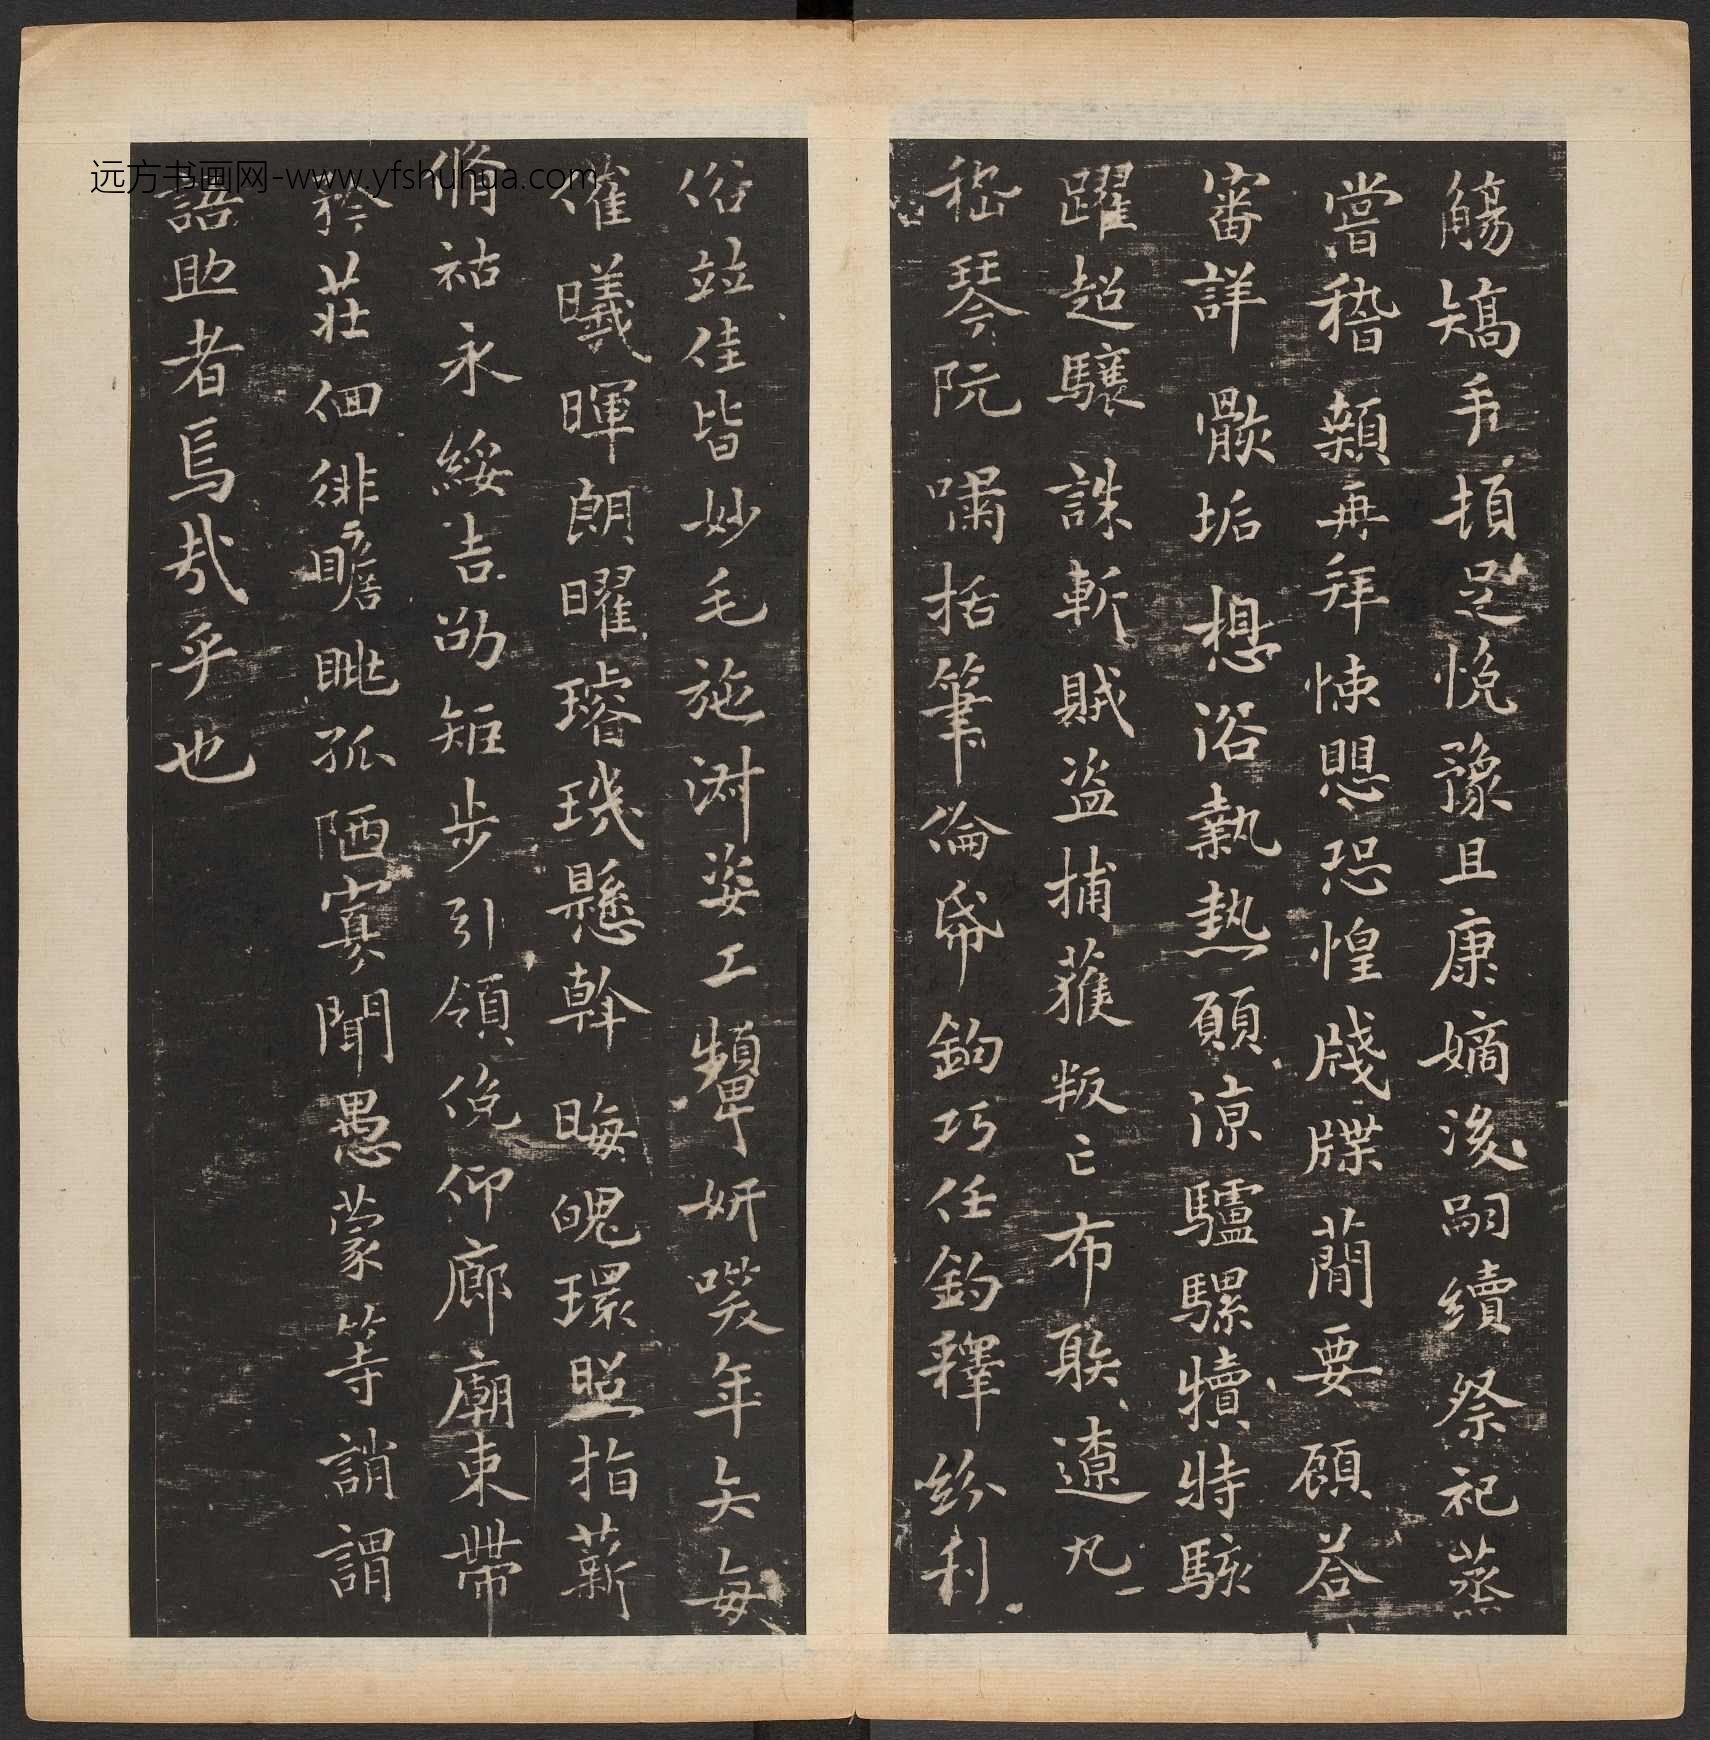 觴矯手頓足悅豫且康嫡後嗣續祭祀蒸
嘗稽顙再拜悚懼恐惶牋牒簡要顧荅
審詳骸垢想浴執熱願涼驢騾犢特駭
躍超驤誅斬賊盜捕獲叛亡布射遼丸
嵇琴阮嘯恬筆倫紙鈞巧任釣釋紛利
俗竝佳皆妙毛施淑姿工顰妍笑年矢每
催曦暉朗曜璿璣懸斡晦魄環照指薪
脩祜永綏吉劭矩步引領俛仰廊廟束帶
矜莊徊徘瞻眺孤陋寡聞愚蒙等誚謂
語助者焉哉乎也
远方书画网-www.yfshuhua.com